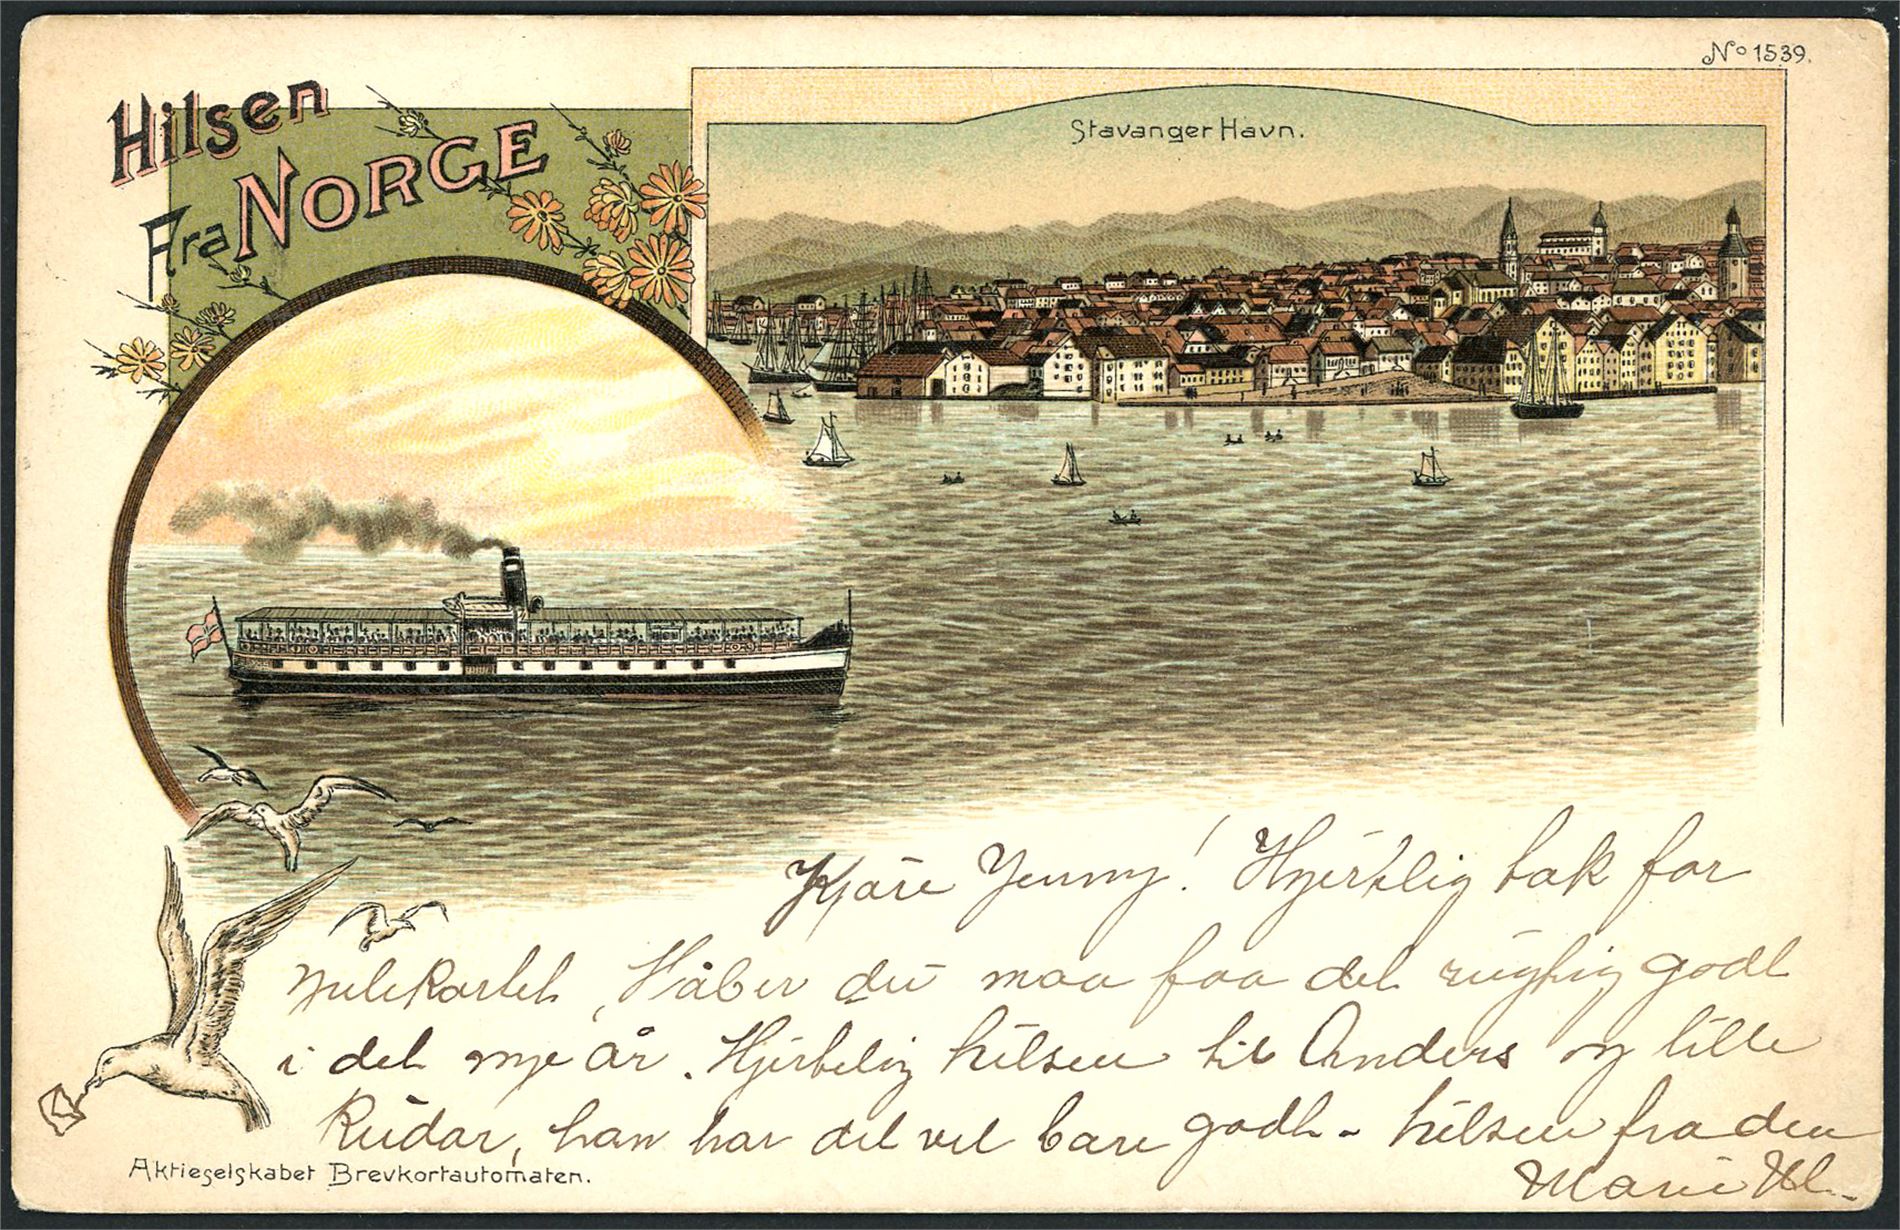 Nº 1539.
Hilsen
Fra NORGE
Stavanger Havn.
Kjære Jenny! Hjertlig tak for
julekortet, Håber du maa faa det rugtig godt
i det nye år. Hjertelig hilsen til Anders og lille
Reidar, han har det vel bare godt - hilsen fra den
Marie
Aktieselskabet Brevkortautomaten.